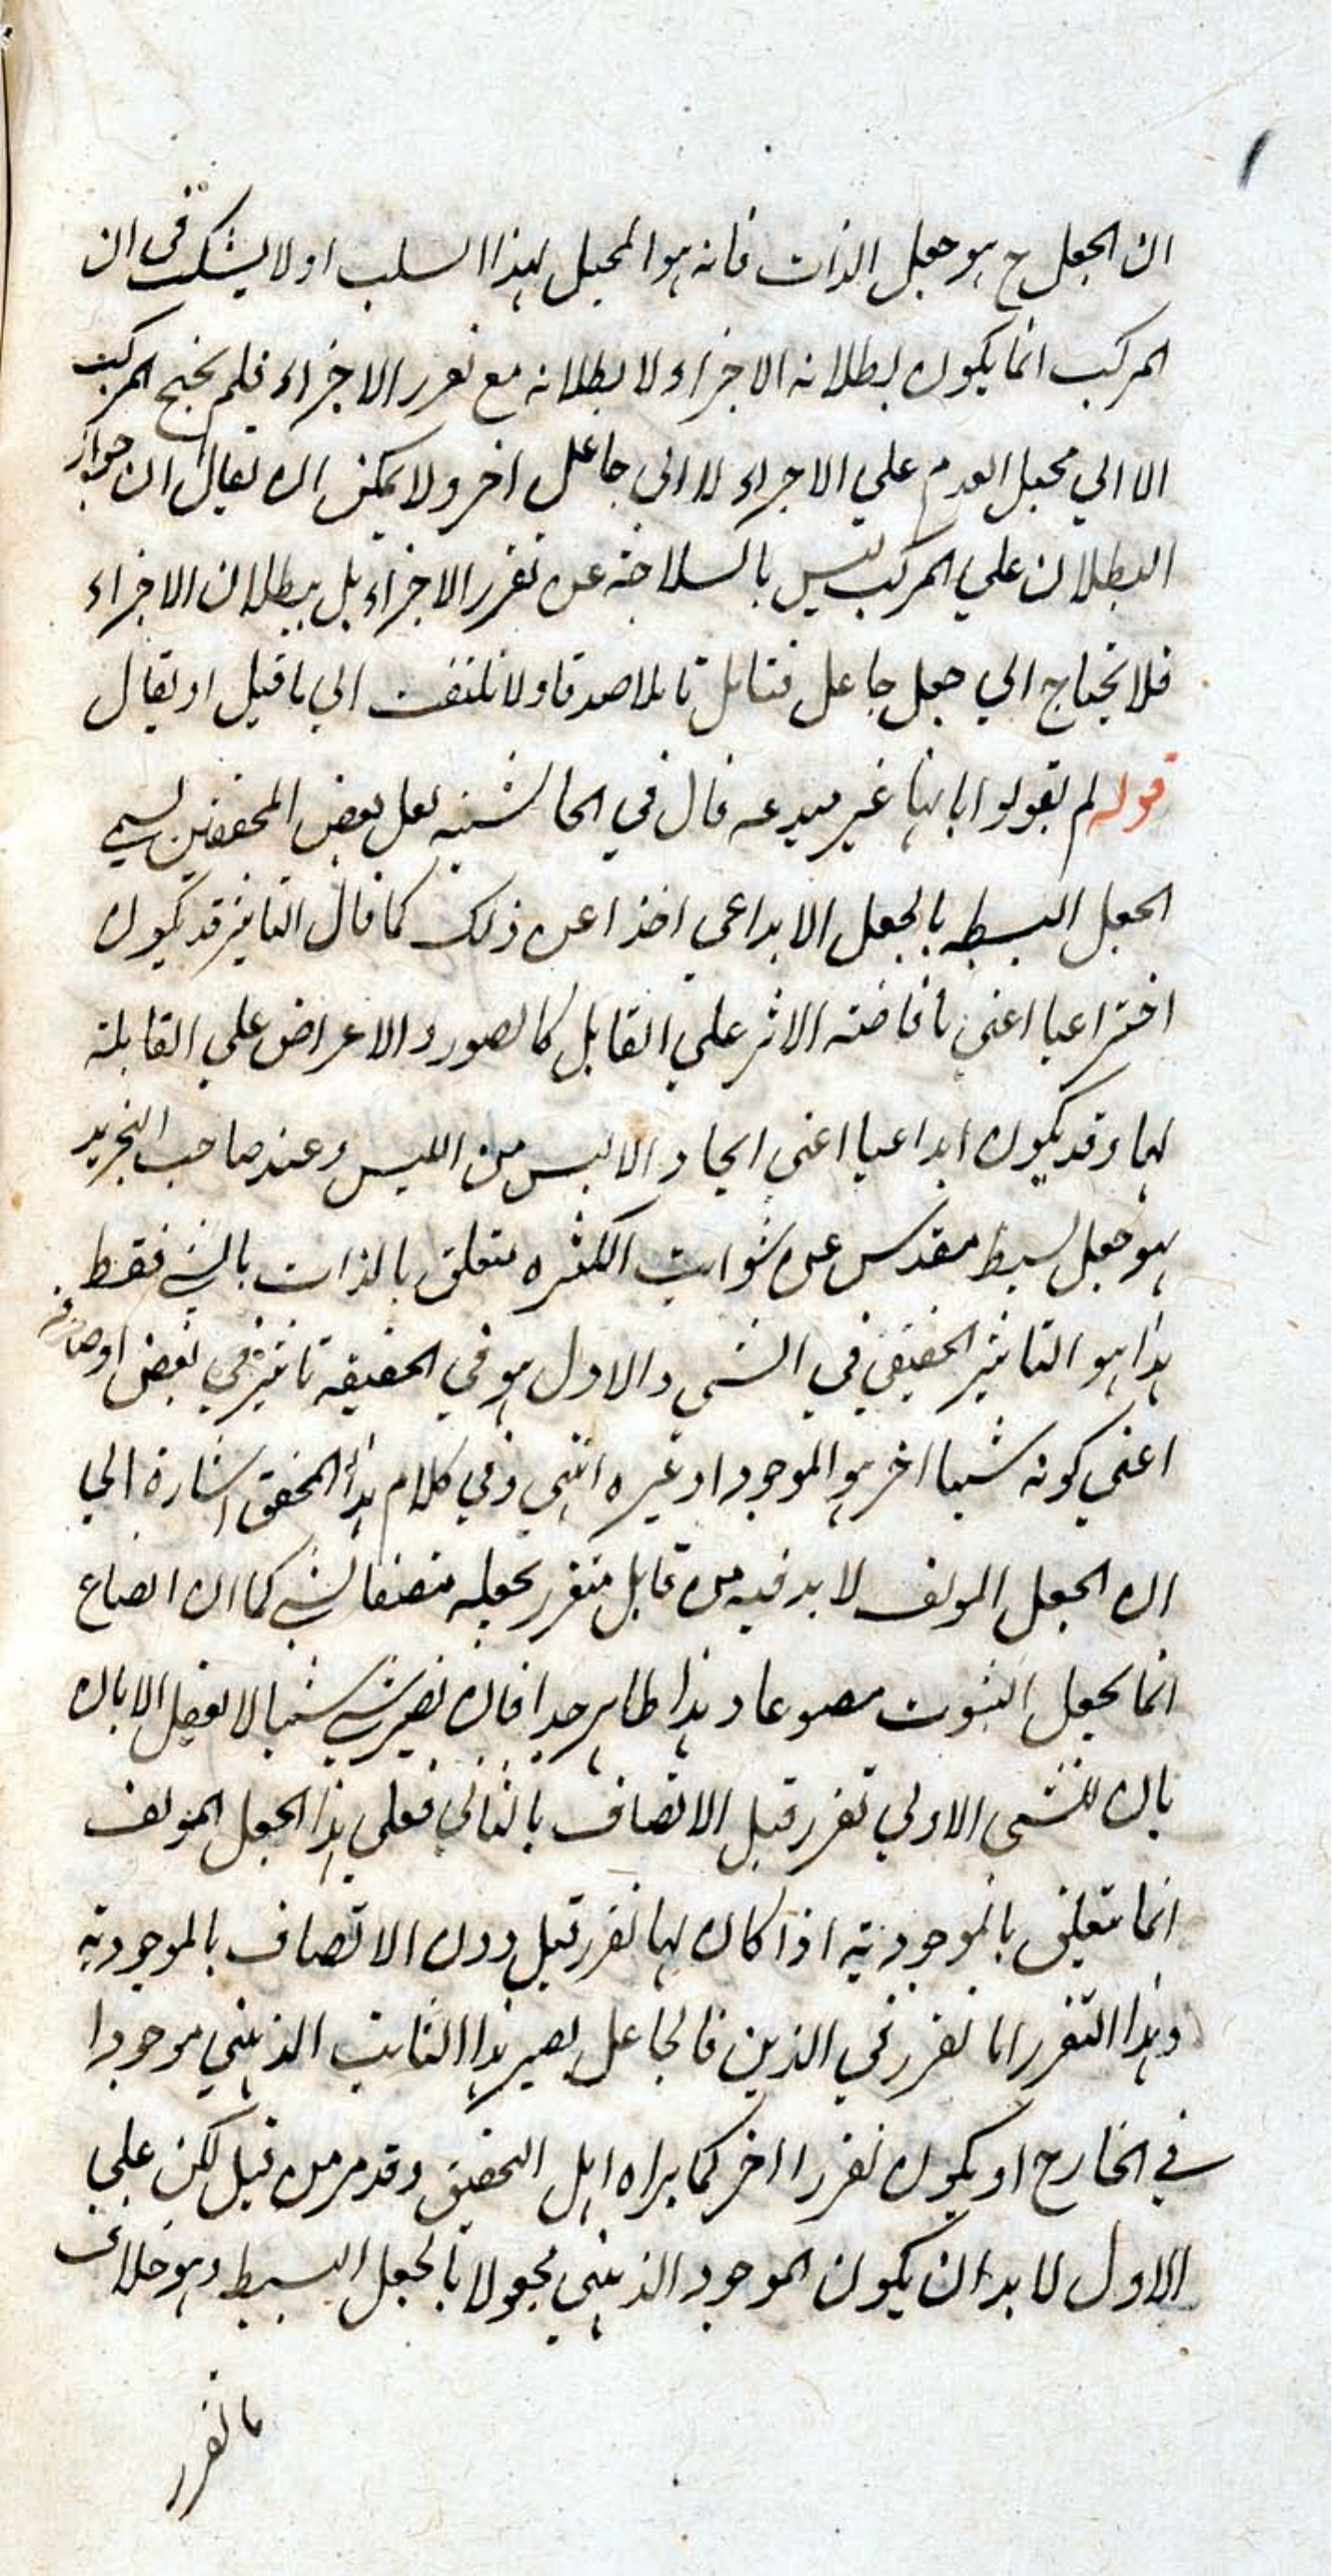 ان الجعل ح هو جعل الذات فانه هو المحيل لهذا السلب اولا يشك في ان
المركب انما يكون بطلانه الاجزاء لا بطلانه مع تقرر الاجزاء فلم يحتج المركب
الا الي محيل العدم علي الاجزاء لا الي جاعل اخر ولا يمكن ان يقال ان جواز
البطلان علي المركب ليس بانسلاخه عن تقرر الاجزاء بل ببطلان الاجزاء
فلا يحتاج الي جعل جاعل فتامل تاملا صدقا ولا تلتفت الي ما قيل او يقال
قوله لم يقولوا بانها غير مبدعه قال في الحاشيه لعل بعض المحققين يسمي
الجعل البسيط بالجعل الابداعي اخذا عن ذلك كما قال التاثير قد يكون
اختراعيا اعني بافاضته الاثر علي القابل كالصور والاعراض علي القابلة
لها وقد يكون ابداعيا اعني ايجاد الايس من الليس وعند صاحب التجريد
هو جعل بسيط مقدس عن شوايب الكثره متعلق بالذات بالشي فقط
هذا هو التاثير الحقيقي في الشي والاول هو في الحقيقه تاثير في بعض اوصافه
اعني كونه شيئا اخر هو الموجود او غيره انتهي وفي كلام هذا المحقق اشارة الي
ان الجعل المولف لا بد فيه من قابل متقرر يجعله متصفا بشي كما ان الصباغ
انما يجعل الثوب مصبوغا وهذا ظاهر جدا فان تصيير شي شيئا لا يعقل الا بان
بان للشي الاولي تقرر قبل الاتصاف بالثاني فعلي هذا الجعل المولف
انما تتعلق بالموجودية اذا كان لها تقرر قبل دون الاتصاف بالموجودية
وهذا التقرر اما تقرر في الذهن فالجاعل يصير هذا الثابت الذهني موجودا
في الخارج او يكون تقررا اخر كما يراه اهل التحقيق وقد مر من قبل لكن علي
الاول لا بد ان يكون الموجود الذهني مجعولا بالجعل البسيط وهو خلاف
ما تقرر